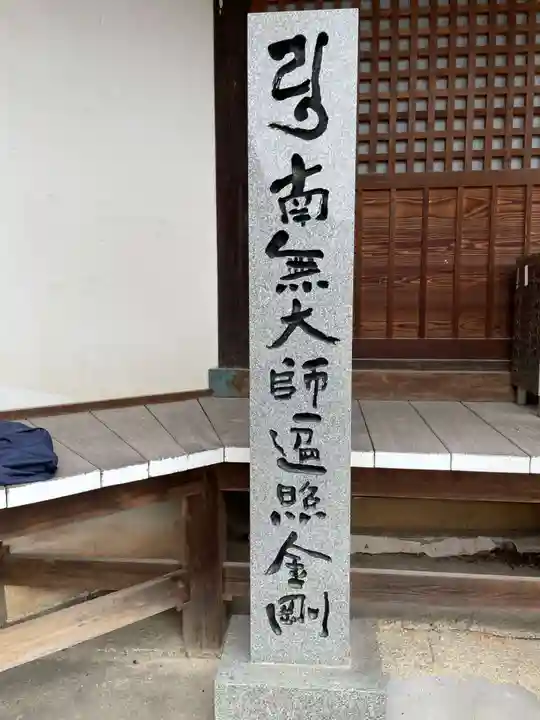 𑖧𑖲𑖽南無大師遍照金剛